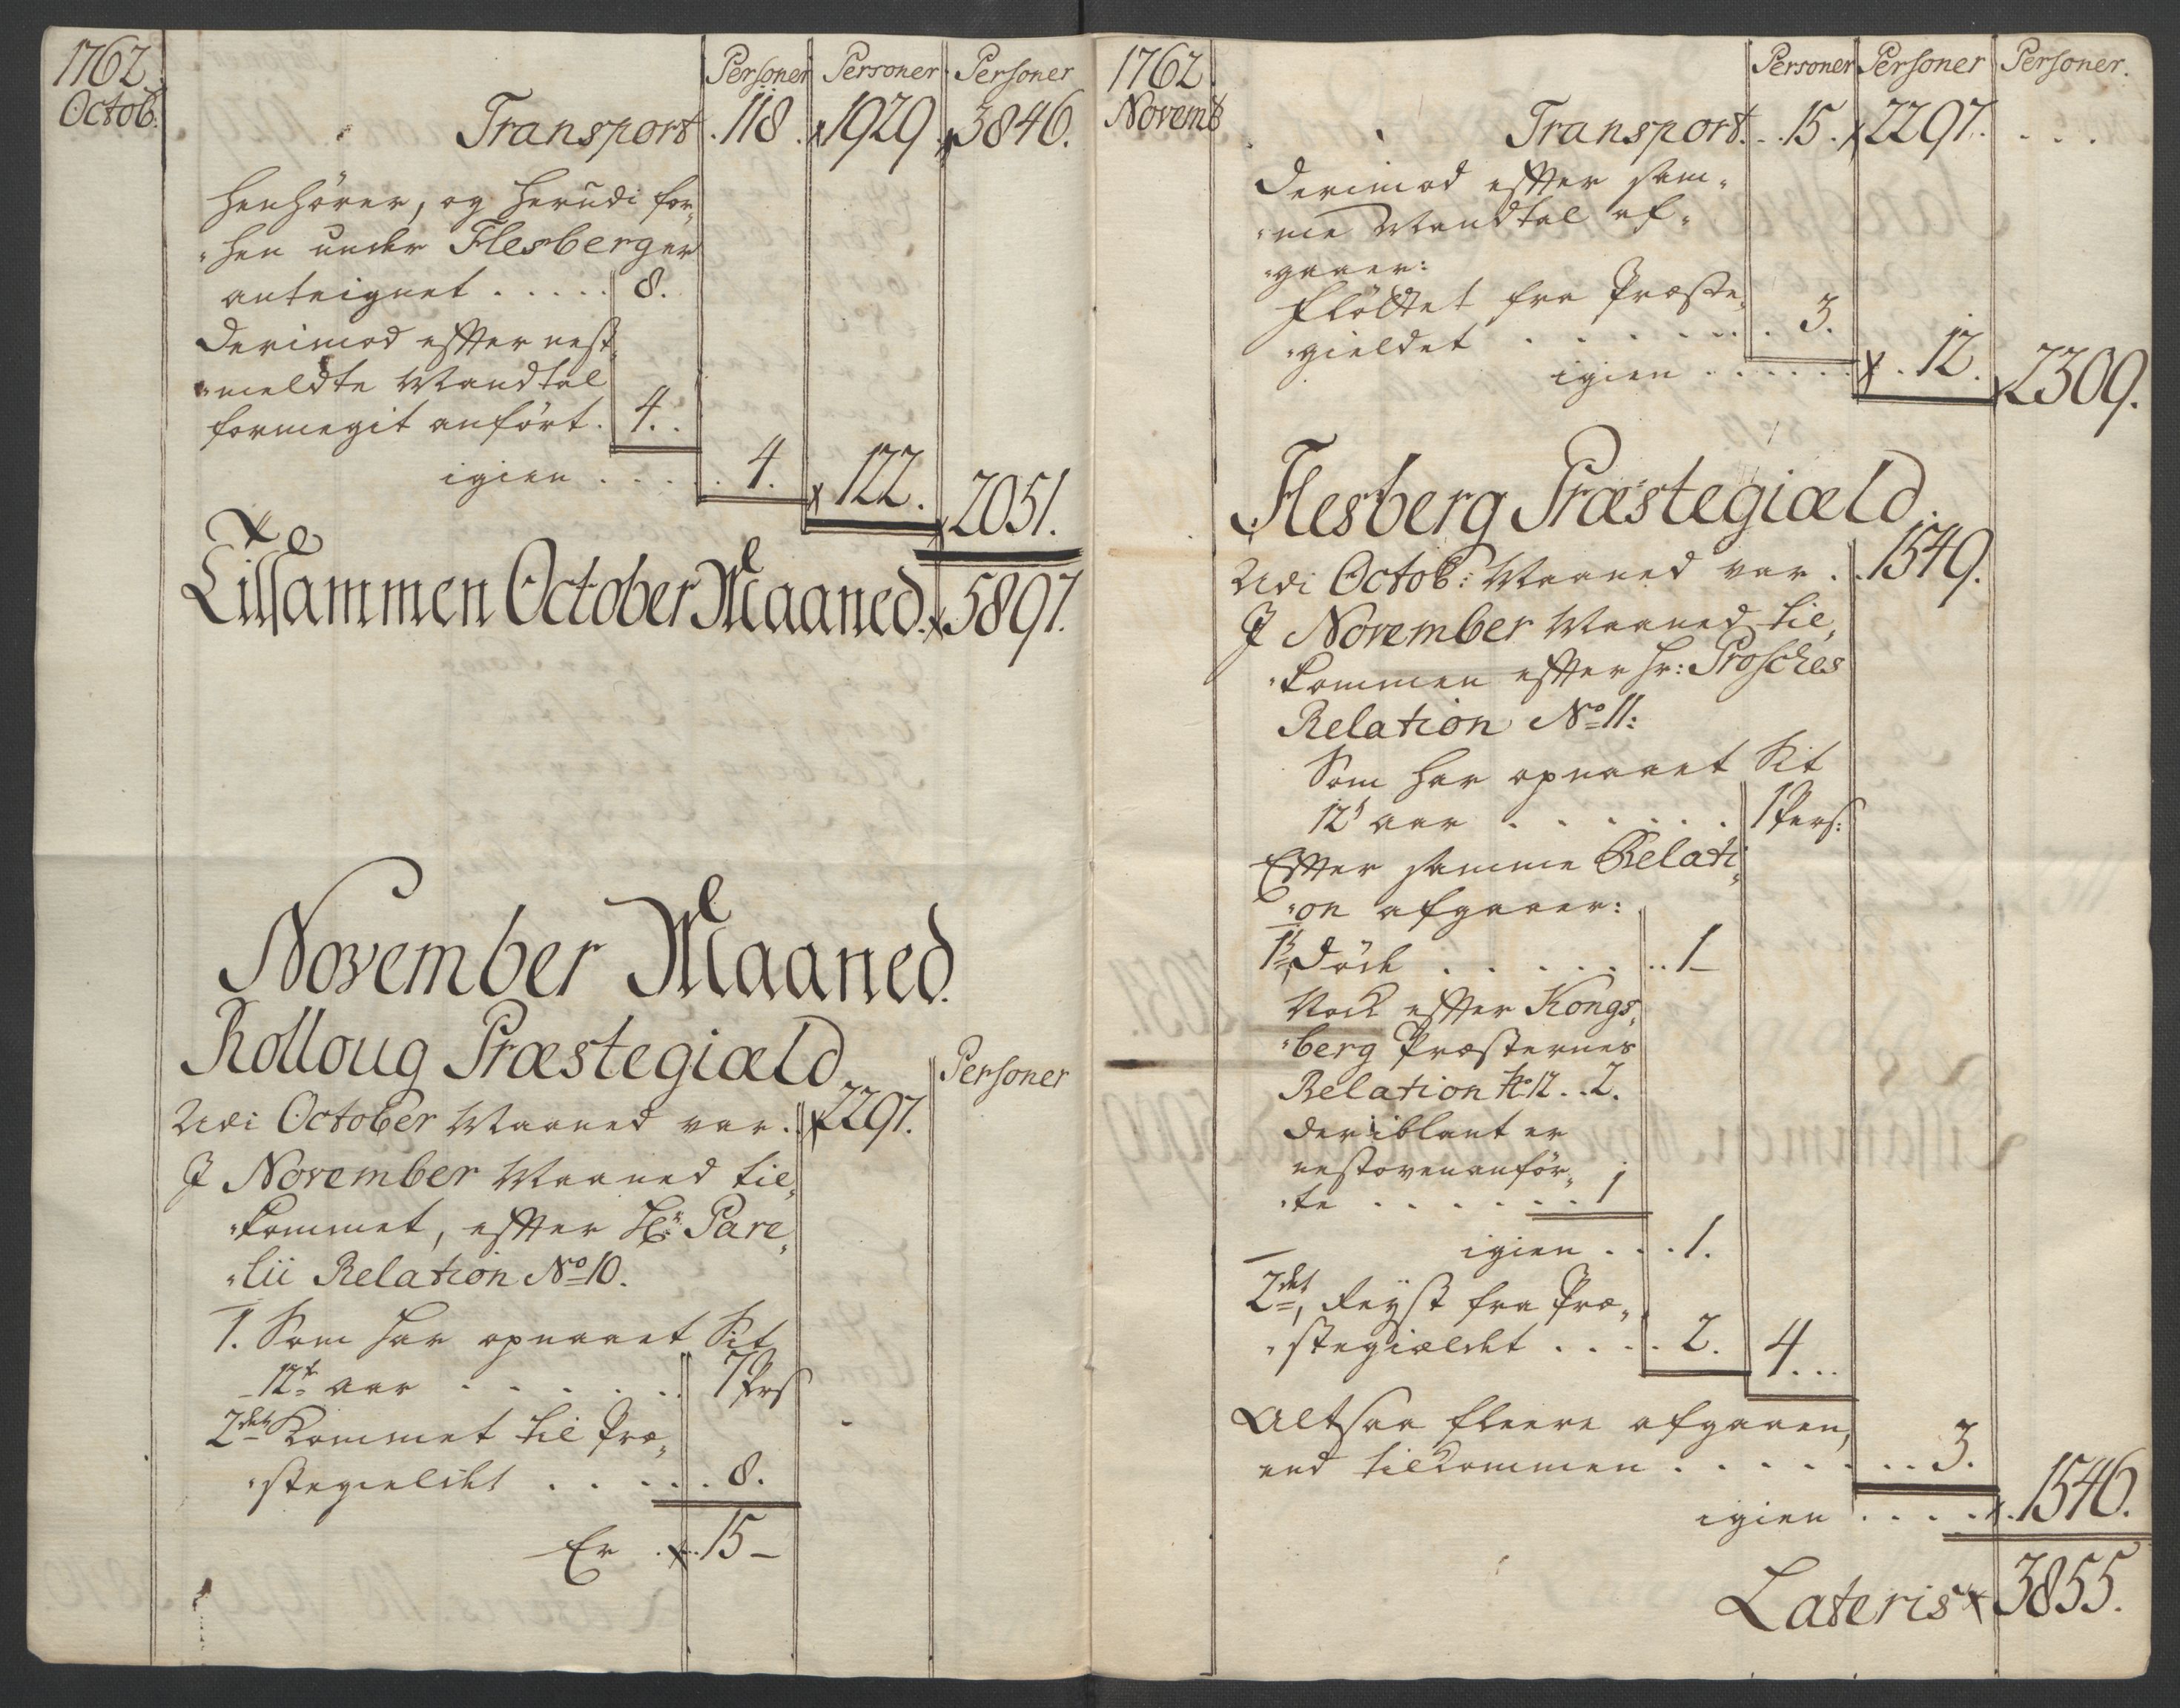 1762
Octob:
Personer Personer Personer
Transport .118. 1929. 3846.
henhörer, og herudi for„
„hen under Flesberger
anteignet . . . . . 8.
Derimod efter nest„
„meldte Mandtal
formegit anfört. 4. .
igien . . . . 4. 122. 2051.
Tilsammen October Maaned. 5897.
November Maaned.
Rolloug Præstegiæld
Personer
Udi October Maaned var . 2297.
J November Maaned til„
„kommet, efter Hr: Pare„
„lii Relation No 10.
1. Som har opnaaet Sit
12te aar . . . . . . 7 Prs
2det Kommet til Præ„
„stegieldet . . . . . 8.
Er . . 15 –
1762
Novemb
Personer Personer Personer.
Transport. . . 15. 2297. . . .
Derimod efter sam„
„me Mandtal af„
„gaaer:
Flöttet fra Præste„
„gieldet . . . . . . . 3.
igien . . . . . . 12. 2309.
Flesberg Præstegiæld.
Udi Octob: Maaned var . . 1549.
J November Maaned til„
„kommen efter Hr: Prosches
Relation No 11:
Som har opnaaet Sit
12t aar . . . . . . 1 Pers:
Efter samme Relati„
„on afgaaer:
1t, Döde . . . . . . . 1 –
Nock efter Kongs„
„berg Præsternes
Relation No 12 . . 2.
deriblant er
nestovenanför„
„te . . . . . . . 1
igien . . . 1.
2det, Reyst fra Præ„
„stegiældet . . . . . 2. 4. . .
Altsaa fleere afgaaen,
end tilkommen . . . . . . . . 3.
igien . . . . . . 1546.
Lateris 3855.